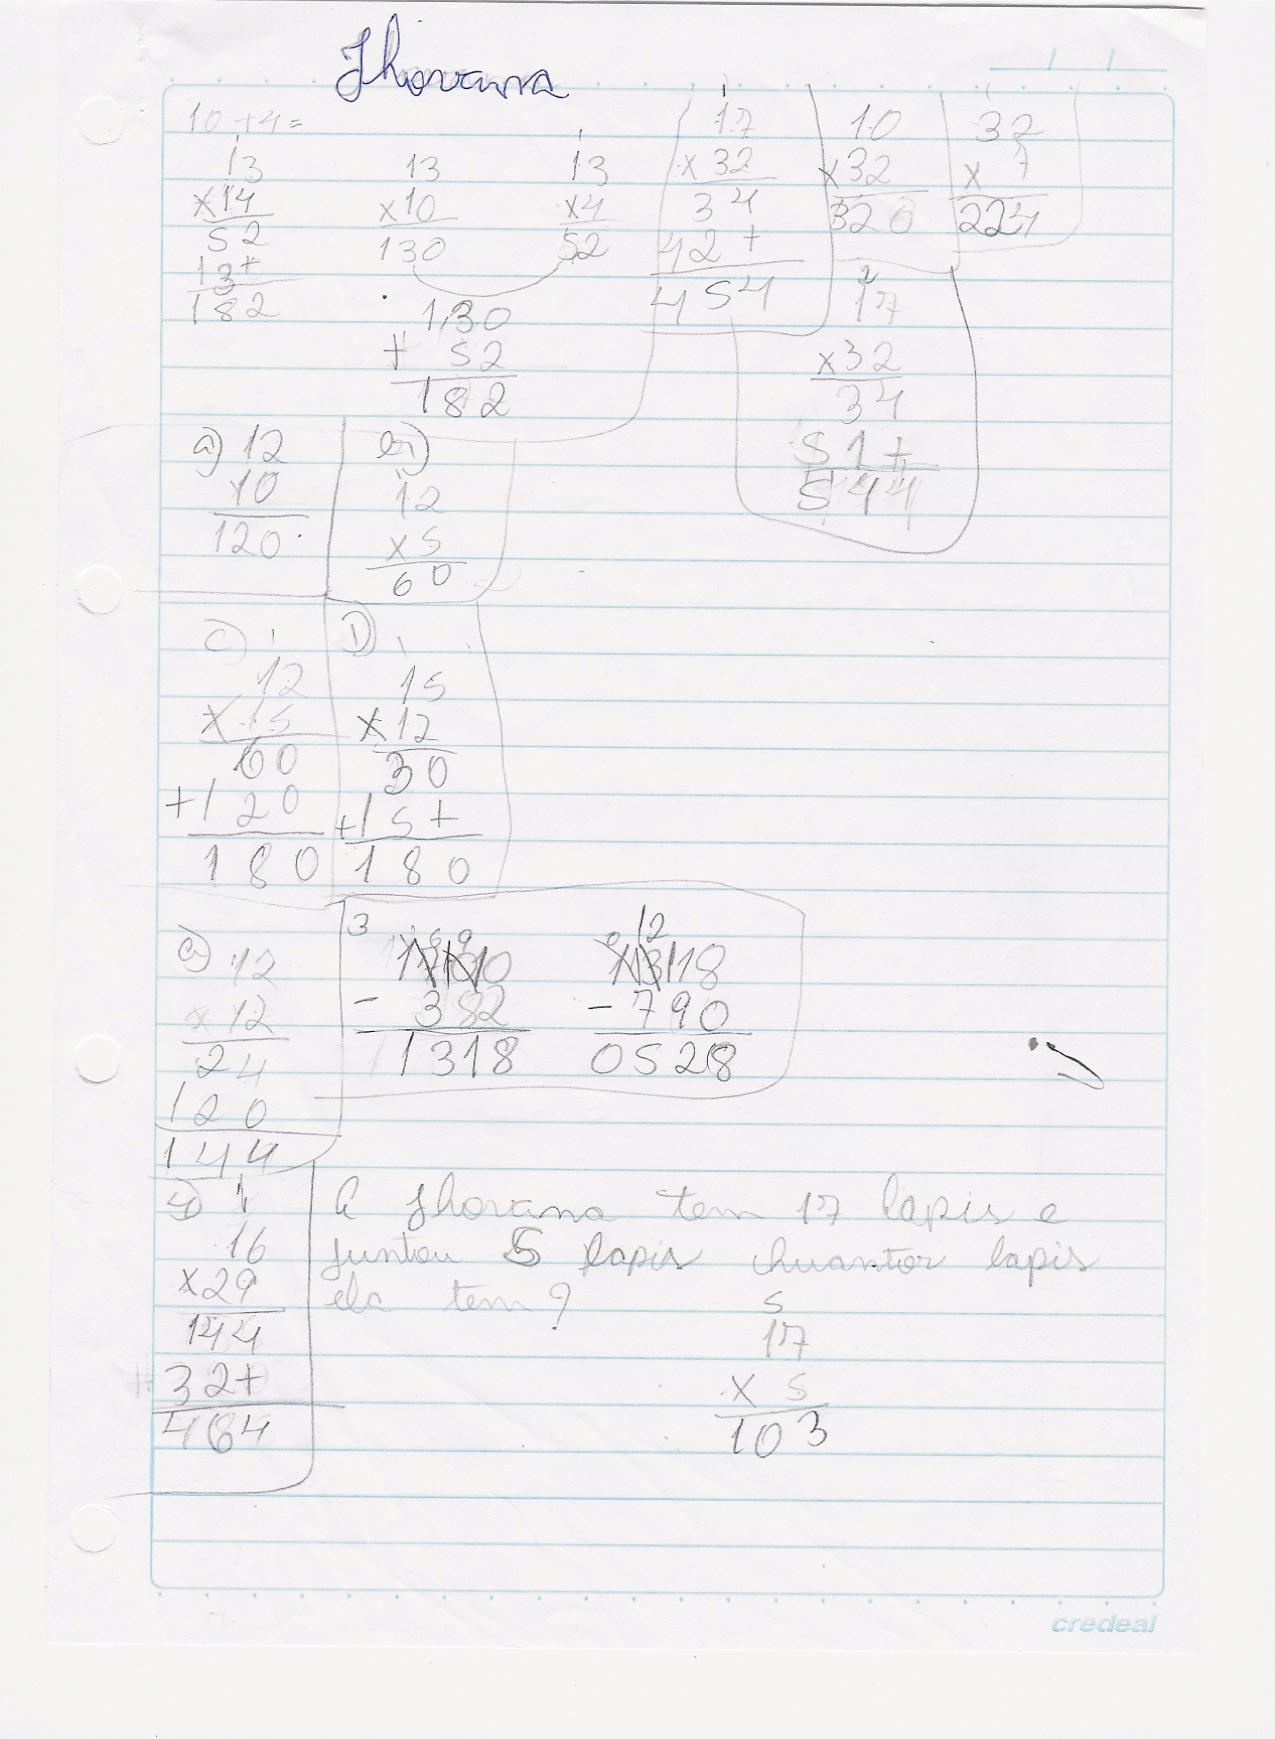 Jhovana
10 + 4 =
1
13
x14
52
13+
182
13
x10
130
1
13
x4
52
130
+ 52
182
1
17
x 32
34
42 +
454
10
x32
320
1
32
x 7
224
2
17
x32
34
51+
544
a) 12
10
120
1
12
x 5
60
c) 1
12
x 15
60
+120
180
D) 1
15
x12
30
+15+
180
e) 12
x 12
24
120
144
3
- 382
1318
12
- 790
0528
4) 1
16
x29
144
32+
464
A Jhovana tem 17 lapis e
juntou 5 lapis chuantor lapis
ela tem?
5
17
x 5
103
credeal